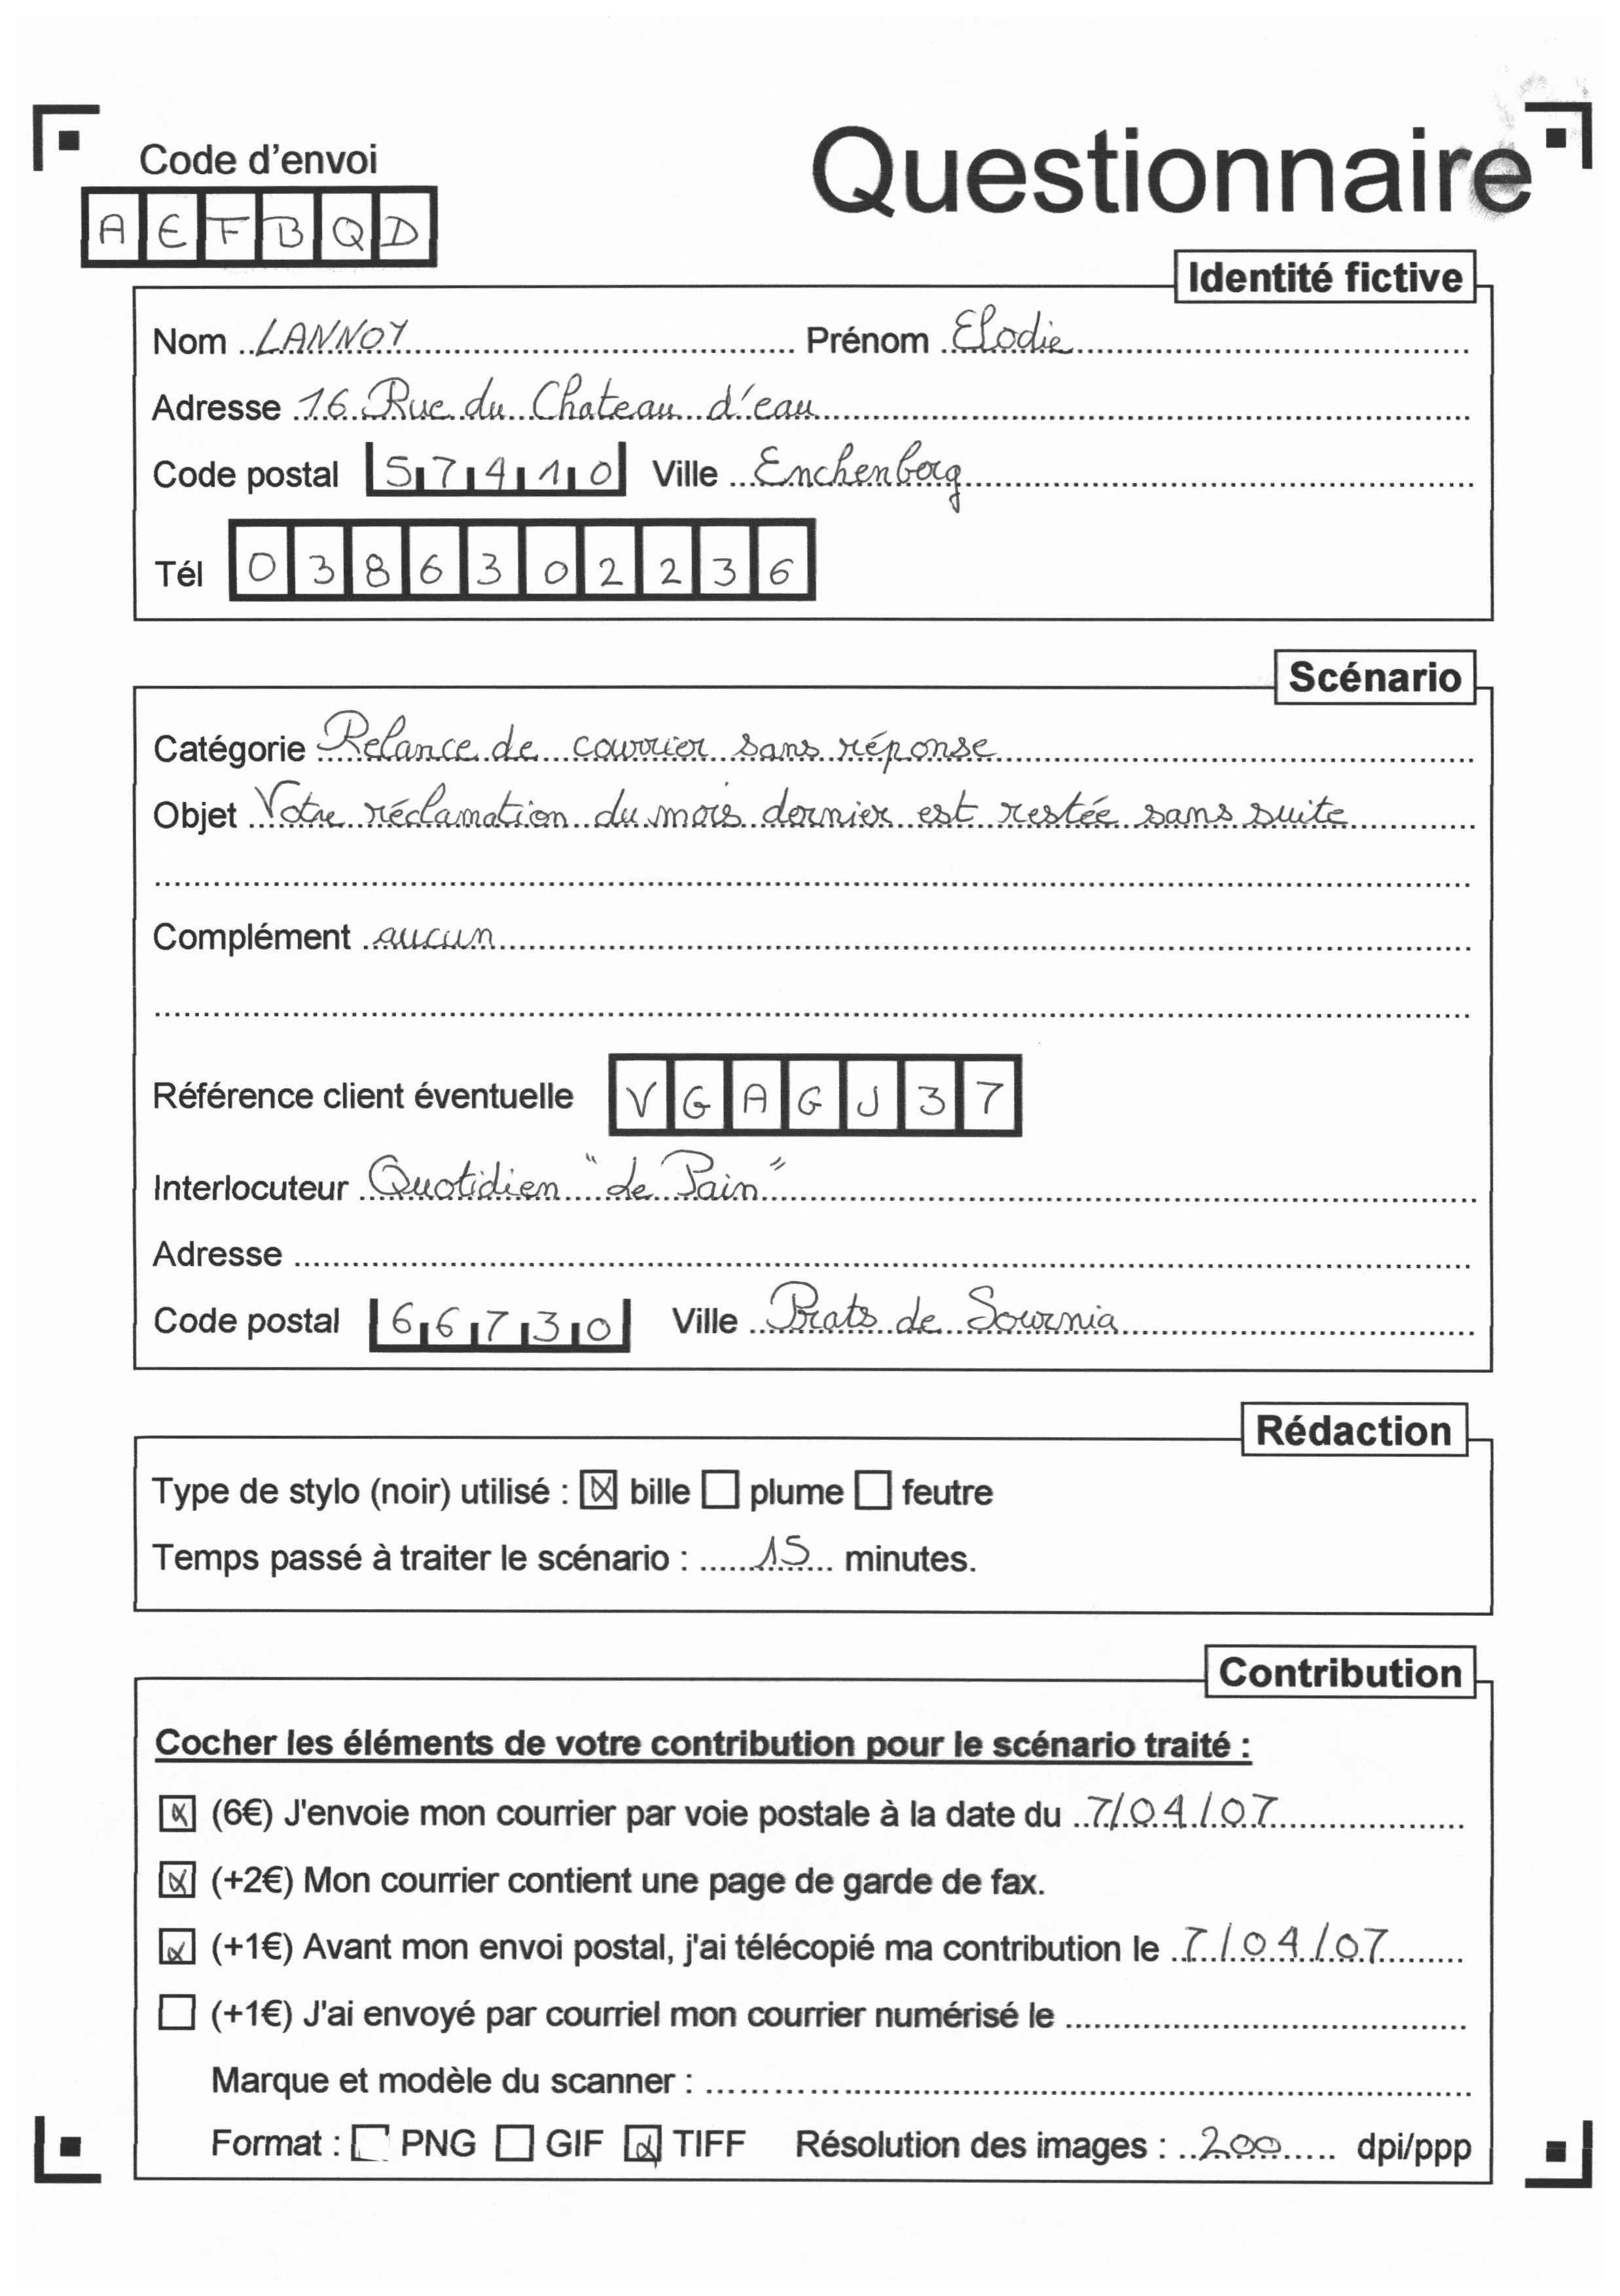 Code d'envoi
Questionnaire
A E F B Q D
Identité fictive
Nom LANNOY Prénom Elodie
Adresse 16 Rue du Chateau d'eau
Code postal 57410 Ville Enchenberg
Tél 0386302236
Scénario
Catégorie Relance de courrier sans réponse
Objet Votre réclamation du mois dernier est restée sans suite
Complément aucun
Référence client éventuelle VGAGJ37
Interlocuteur Quotidien "Le Pain"
Adresse
Code postal 66730 Ville Prats de Sournia
Rédaction
Type de stylo (noir) utilisé : bille plume feutre
Temps passé à traiter le scénario : 15 minutes.
Contribution
Cocher les éléments de votre contribution pour le scénario traité :
(6€) J'envoie mon courrier par voie postale à la date du 7/04/07
(+2€) Mon courrier contient une page de garde de fax.
(+1€) Avant mon envoi postal, j'ai télécopié ma contribution le 7/04/07
(+1€) J'ai envoyé par courriel mon courrier numérisé le
Marque et modèle du scanner :
Format : PNG GIF TIFF Résolution des images : 200 dpi/ppp